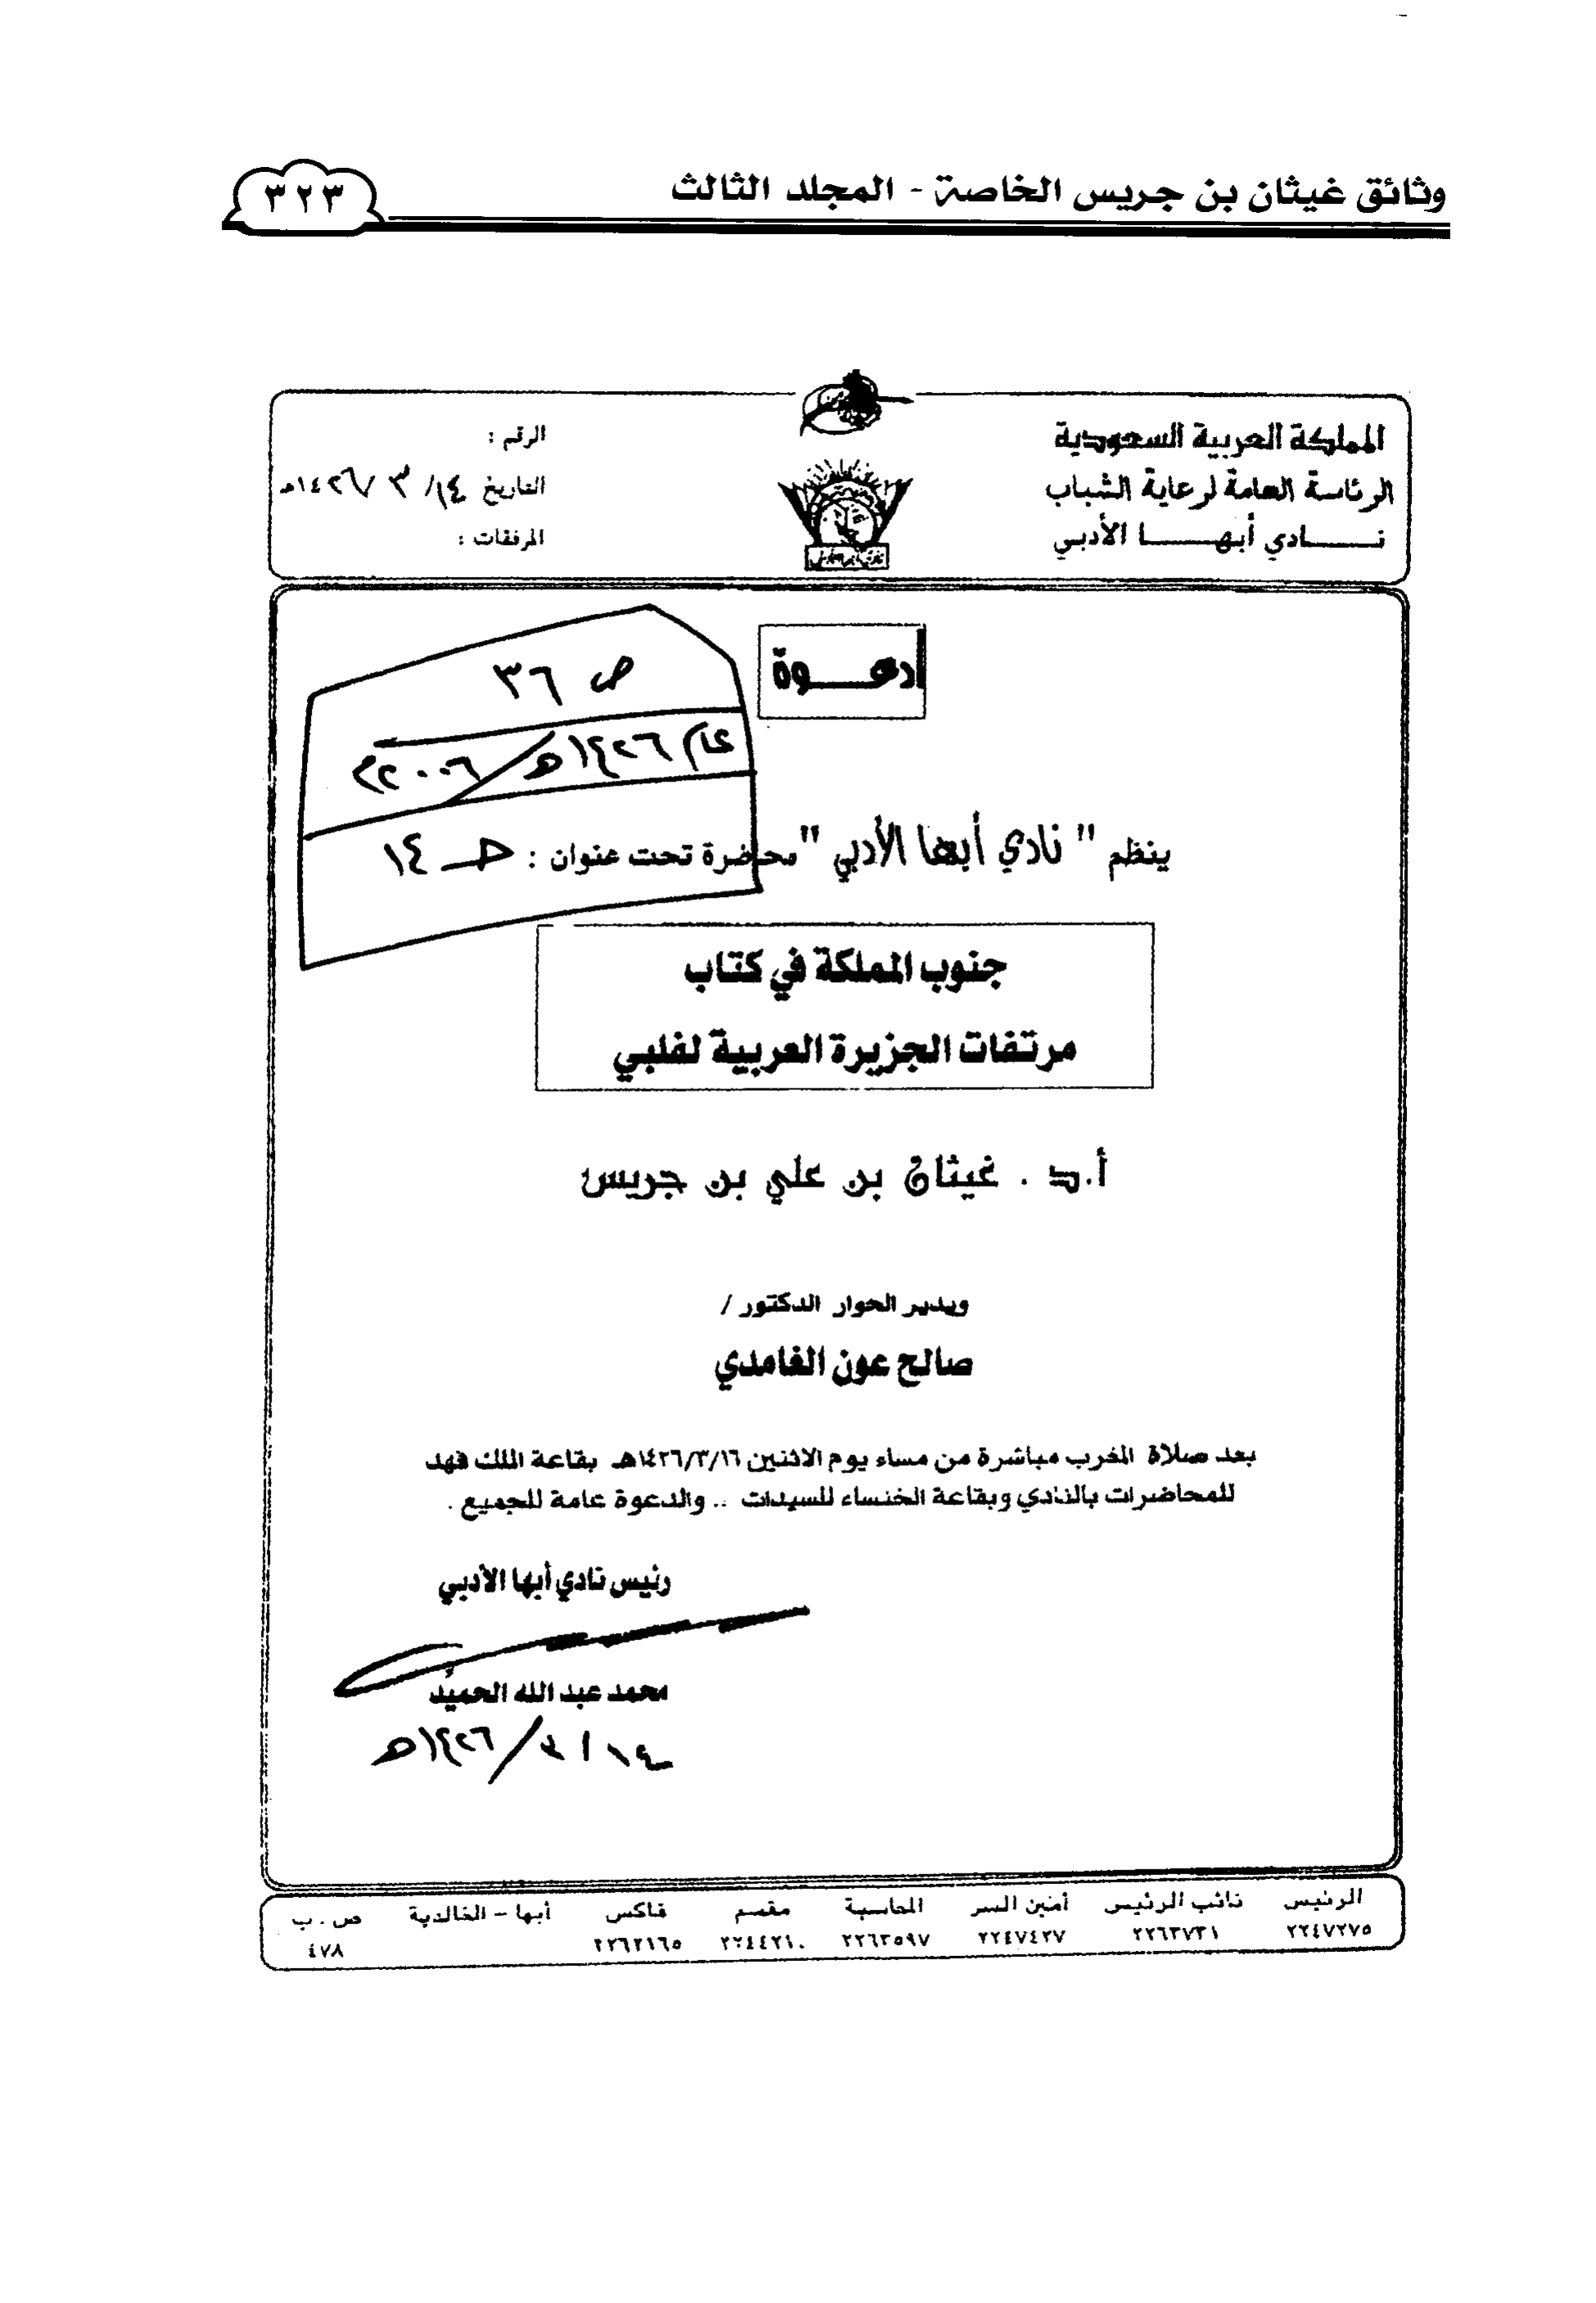 وثائق غيثان بن جريس الخاصة - المجلد الثالث
٣٢٣
المملكة العربية السعودية
الرئاسة العامة لرعاية الشباب
نــــادي أبهــــا الأدبي
الرقم :
التاريخ ١٤/ ٣ /١٤٢٦هـ
المرفقات :
دعـــوة
ص ٣٦
عام ١٤٢٦هـ/٢٠٠٦م
حـ ١٤
ينظم " نادي أبها الأدبي " محاضرة تحت عنوان :
جنوب المملكة في كتاب
مرتفات الجزيرة العربية لفلبي
أ.د . غيثان بن علي بن جريس
ويدير الحوار الدكتور /
صالح عون الغامدي
بعد صلاة المغرب مباشرة من مساء يوم الاثنين ١٤٢٦/٣/١٦هـ بقاعة الملك فهد
للمحاضرات بالنادي وبقاعة الخنساء للسيدات .. والدعوة عامة للجميع .
رئيس نادي أبها الأدبي
محمد عبد الله الحميّد
١٤ / ٣ / ١٤٢٦هـ
الرئيس نائب الرئيس أمين السر المحاسبة مقسم فاكس أبها - الخالدية ص . ب
٢٢٤٧٢٧٥ ٢٢٦٣٧٣١ ٢٢٤٧٤٢٧ ٢٢٦٣٥٩٧ ٢٢٤٤٢١٠ ٢٢٦٢١٦٥ ٤٧٨